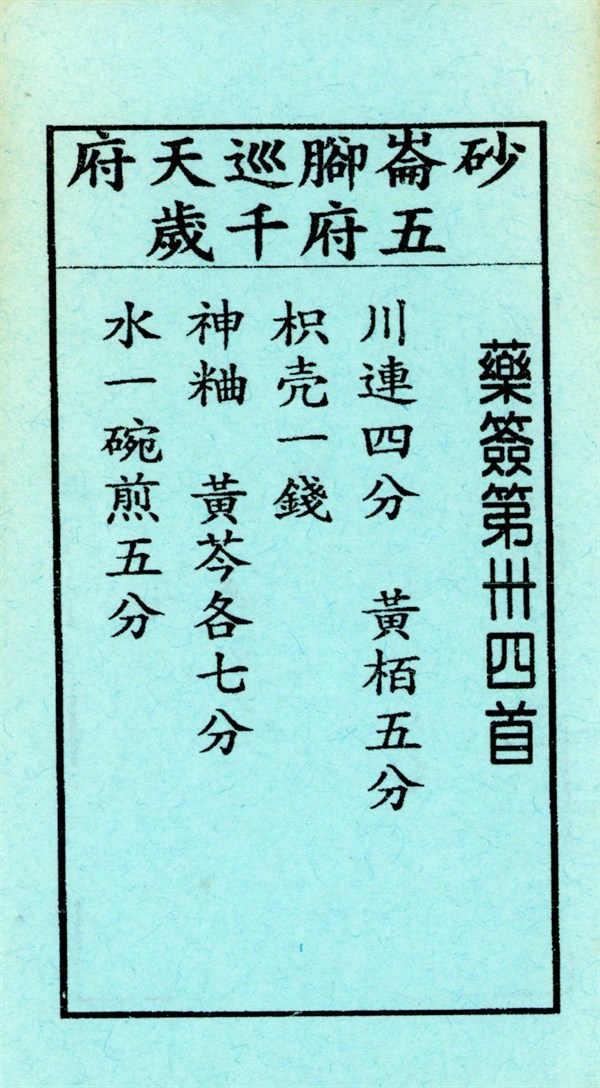 砂崙腳巡天府
五府千歲
藥簽第卅四首
川連四分 黃栢五分
枳壳一錢
神粬 黃芩各七分
水一碗煎五分